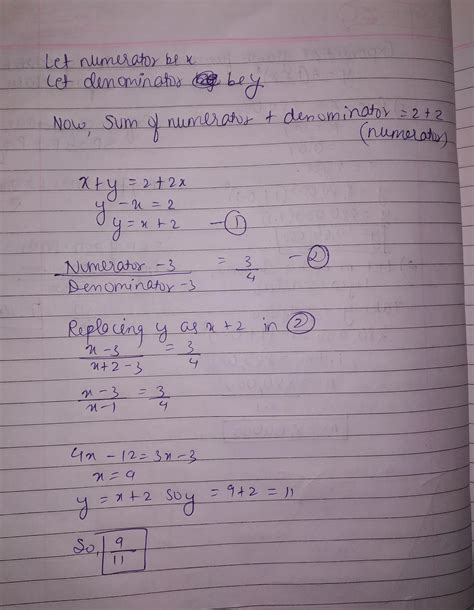 Let numerator be x
Let denominator be y
Now, Sum of numerator + denominator = 2+2
(numerator)
x+y = 2+2x
y-x = 2
y = x+2 - ①
Numerator -3 / Denominator -3 = 3/4 - ②
Replacing y as x+2 in ②
x-3 / x+2-3 = 3/4
x-3 / x-1 = 3/4
4x - 12 = 3x - 3
x = 9
y = x+2 so y = 9+2 = 11
So, 9/11